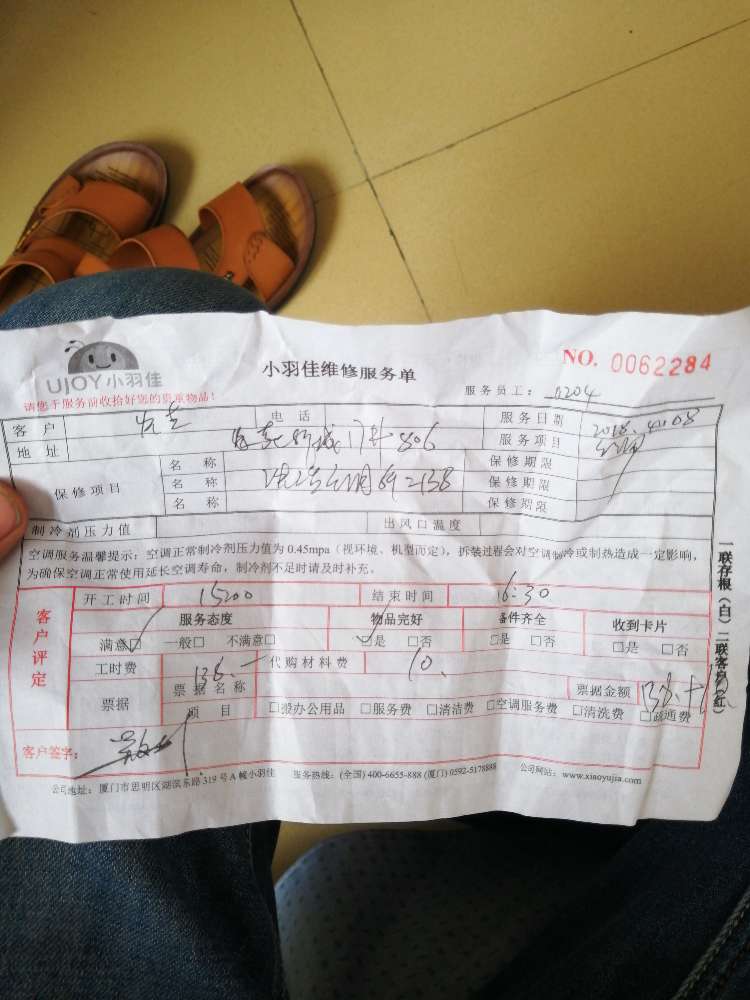 UJOY小羽佳
小羽佳维修服务单
NO. 0062284
请您于服务前收拾好您的贵重物品!
服务员工: 0204
客户 电话 服务日期 2018.4.08
地址 806 服务项目
保修项目 名称 保修期限
名称 保修期限
名称 保修期限
制冷剂压力值 出风口温度
空调服务温馨提示:空调正常制冷剂压力值为0.45mpa(视环境、机型而定),拆装过程会对空调制冷或制热造成一定影响,
为确保空调正常使用延长空调寿命,制冷剂不足时请及时补充。
客户评定
开工时间 15:00 结束时间 16:30
服务态度 物品完好 备件齐全 收到卡片
满意□ 一般□ 不满意□ □是 □否 □是 □否 □是 □否
工时费 138.- 代购材料费 10.
票据 票据名称 票据金额 138.+10
项目 □办公用品 □服务费 □清洁费 □空调服务费 □清洗费 □疏通费
客户签字:
公司地址:厦门市思明区湖滨东路319号A幢小羽佳 服务热线:(全国)400-6655-888 (厦门)0592-5178888 公司网站:www.xiaoyujia.com
一联存根(白)二联客户(红)